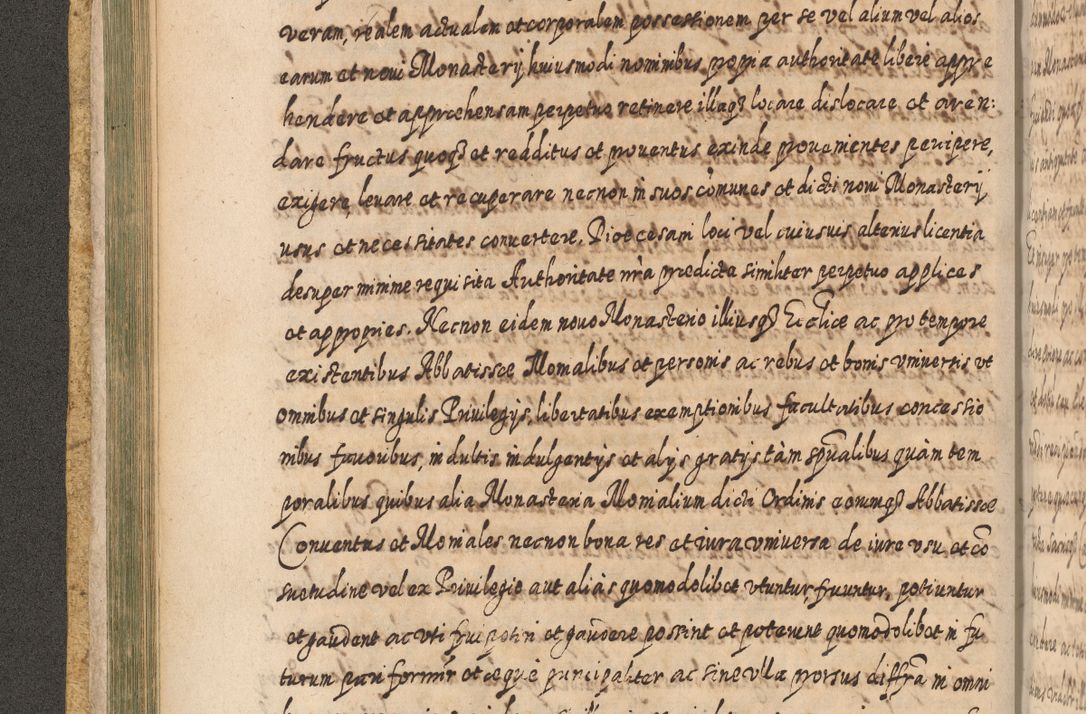 veram, realem actualem et corporalem possessionem per se vel alium vel alios
earum et novi Monasterij huiusmodi nominibus propria authoritate libere appre
hendere et apprehensam perpetuo retinere illaq3 locare dislocare et aren:
dare fructus quoq3 et redditus et proventus exinde provenientes percipere,
exigere, levare et recuperare necnon in suos cõmunes et dicti novi Monasterij
usus et necessitates convertere. Diocesani loci vel cuiusvis alterius licentia
desuper minime requisita Authoritate nr̃a predicta similiter perpetuo applices
et appropries. Necnon eidem novo Monasterio illiusq3 Eccl̃ie ac pro tempore
existentibus Abbatissæ Monialibus et personis ac rebus et bonis universis ut
omnibus et singulis Privilegijs, libertatibus exemptionibus facultatibus concessio
nibus favoribus, indultis indulgentijs et alijs gratijs tàm sp̃ualibus quàm tem
poralibus quibus alia Monasteria Monialium dicti Ordinis eorumq3 Abbatissæ
Conventus et Moniales necnon bona res et iura universa de iure usu et cõ
suetudine vel ex Privilegio aut aliàs quomodolibet utuntur fruuntur, potiuntur
et gaudent ac uti frui potiri et gaudere possint et poterunt quomodolibet in fu
turum pari formir̃ et æque principaliter ac sine ulla prorsus diffr̃a in omni